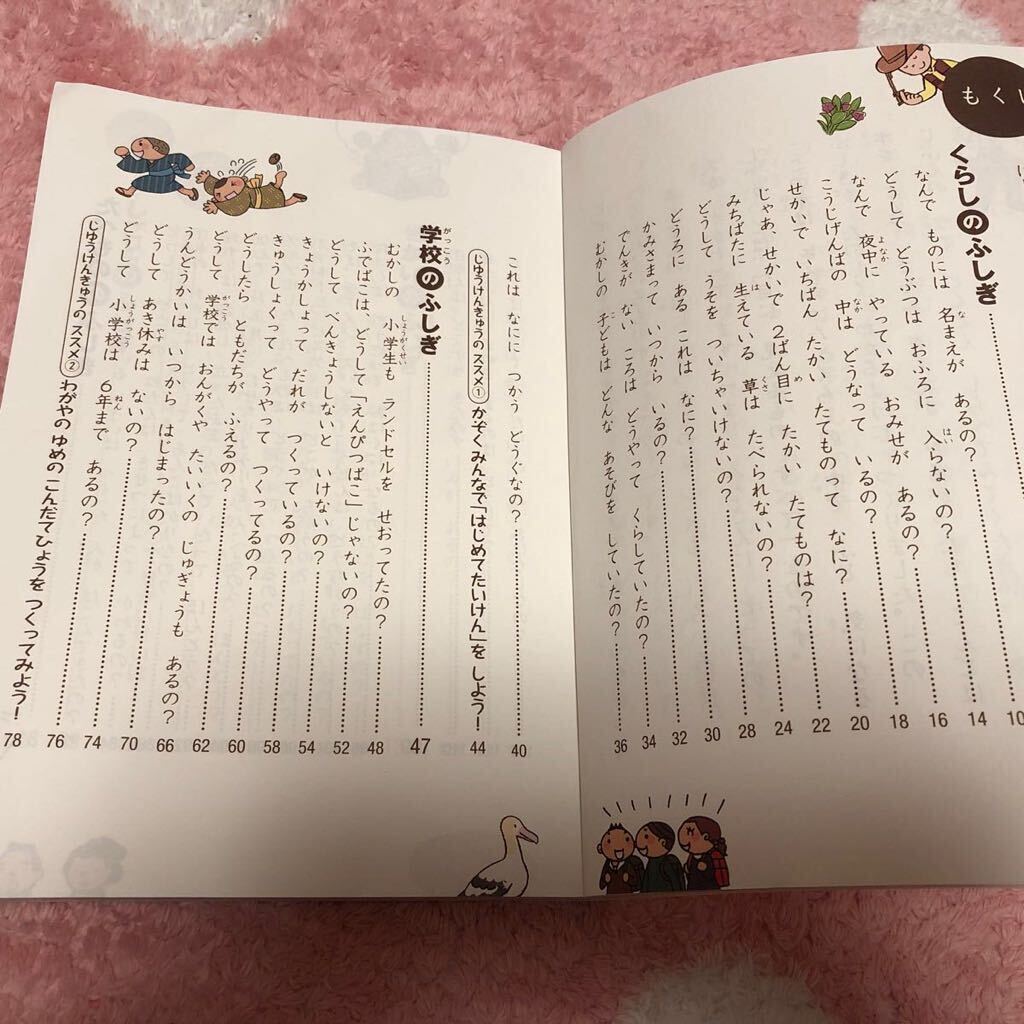 もく
くらしのふしぎ
なんで ものには 名まえが あるの? 10
どうして どうぶつは おふろに 入らないの? 14
なんで 夜中に やっている おみせが あるの? 16
こうじげんばの 中は どうなって いるの? 18
せかいで いちばん たかい たてものって なに? 20
じゃあ、せかいで 2ばん目に たかい たてものは? 22
みちばたに 生えている 草は たべられないの? 24
どうして うそを ついちゃいけないの? 28
どうろに ある これは なに? 30
かみさまって いつから いるの? 32
でんきが ない ころは どうやって くらしていたの? 34
むかしの 子どもは どんな あそびを していたの? 36
これは なにに つかう どうぐなの? 40
じゆうけんきゅうの ススメ① かぞくみんなで「はじめてたいけん」を しよう! 44
学校のふしぎ 47
むかしの 小学生も ランドセルを せおってたの? 48
ふでばこは、どうして「えんぴつばこ」じゃないの? 52
どうして べんきょうしないと いけないの? 54
きょうかしょって だれが つくっているの? 58
きゅうしょくって どうやって つくってるの? 60
どうしたら ともだちが ふえるの? 62
どうして 学校では おんがくや たいいくの じゅぎょうも あるの? 66
うんどうかいは いつから はじまったの? 70
どうして あき休みは ないの? 74
どうして 小学校は 6年まで あるの? 76
じゆうけんきゅうの ススメ② わがやの ゆめの こんだてひょうを つくってみよう! 78